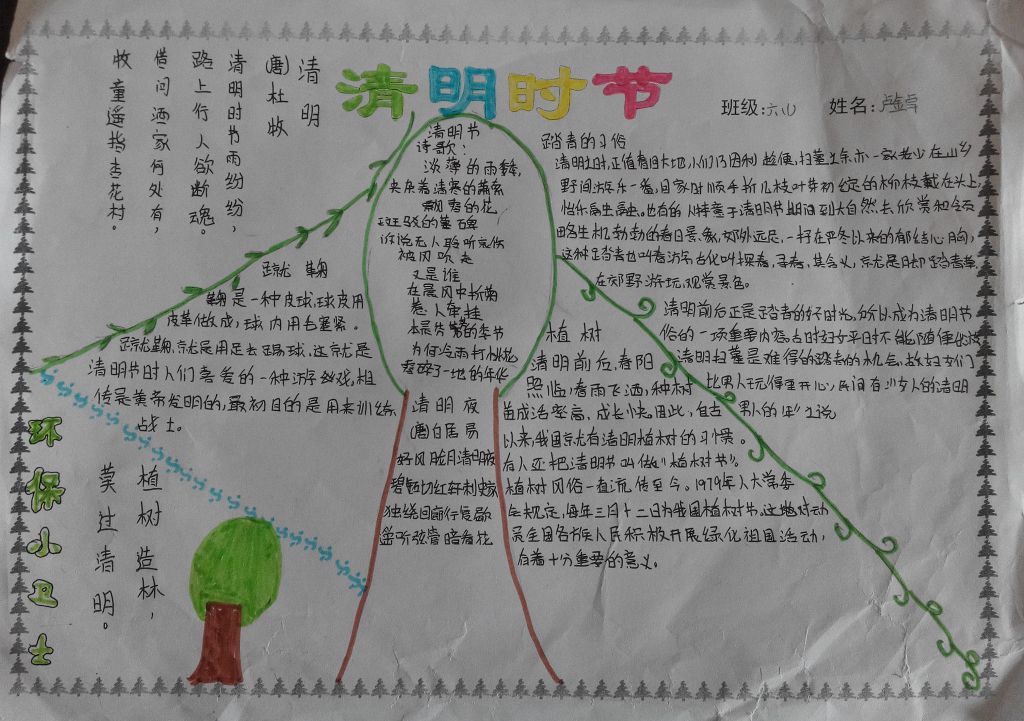 清明时节
班级:六(1)
姓名:
清明
(唐)杜牧
清明时节雨纷纷,
路上行人欲断魂。
借问酒家何处有,
牧童遥指杏花村。
清明节
诗歌:
淡薄的雨季,
夹杂着清寒的萧索
飘零的花
斑驳的墓碑
诉说无人聆听哀伤
被风吹走
又是谁
在晨风中祈祷
愁人牵挂
本是芳馨的季节
为何冷雨打桃花
零碎了一地的年华
清明夜
(唐)白居易
好风胧月清明夜
碧砌红轩刺史家
独绕回廊行复歇
遥听弦管暗看花
踏青的习俗
清明之时,正值春回大地,人们乃因利趁便,扫墓之余亦一家老少在山乡
野间游乐一番,回家时顺手折几枝叶芽初绽的柳枝戴在头上,
怡乐融融。也有的人特意于清明节期间到大自然去欣赏和
生机勃勃的春日景象,郊外远足,一抒在严冬以来的郁结心胸,
这种踏青也叫春游,古代叫探春,寻春,其含义,就是脚踏青草,
在郊野游玩,观赏景色。
清明前后正是踏青的好时光,所以成为清明节
俗的一项重要内容。古时妇女平时不能随便出游
清明扫墓是难得的踏青的机会,故妇女们
比男人玩得更开心,民间有“女人的清明
男人的年”之说
蹴鞠
鞠是一种皮球,球皮用
皮革做成,球内用毛塞紧。
蹴鞠,就是用足去踢球。这就是
清明节时人们喜爱的一种游戏,相
传是黄帝发明的,最初目的是用来训练
战士。
植树
清明前后,春阳
照临,春雨飞洒,种树
苗成活率高,成长快。因此,自古
以来,我国就有清明植树的习惯。
有人还把清明节叫做《植树节》。
植树风俗一直流传至今。1979年,人大常委
会规定,每年三月十二日为我国植树节。这对动
员全国各族人民积极开展绿化祖国活动,
有着十分重要的意义。
植树造林,
莫过清明。
环保小卫士